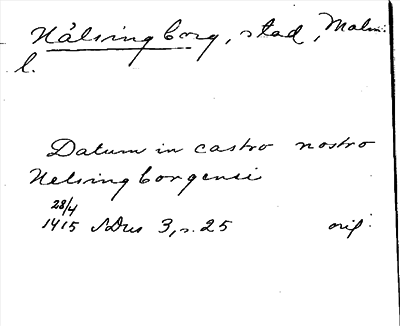 Hälsingborg, stad, Malm.
l.
Datum in castro nostro
Helsingborgensi
28/4
1415 SDns 3, s. 25 orig.